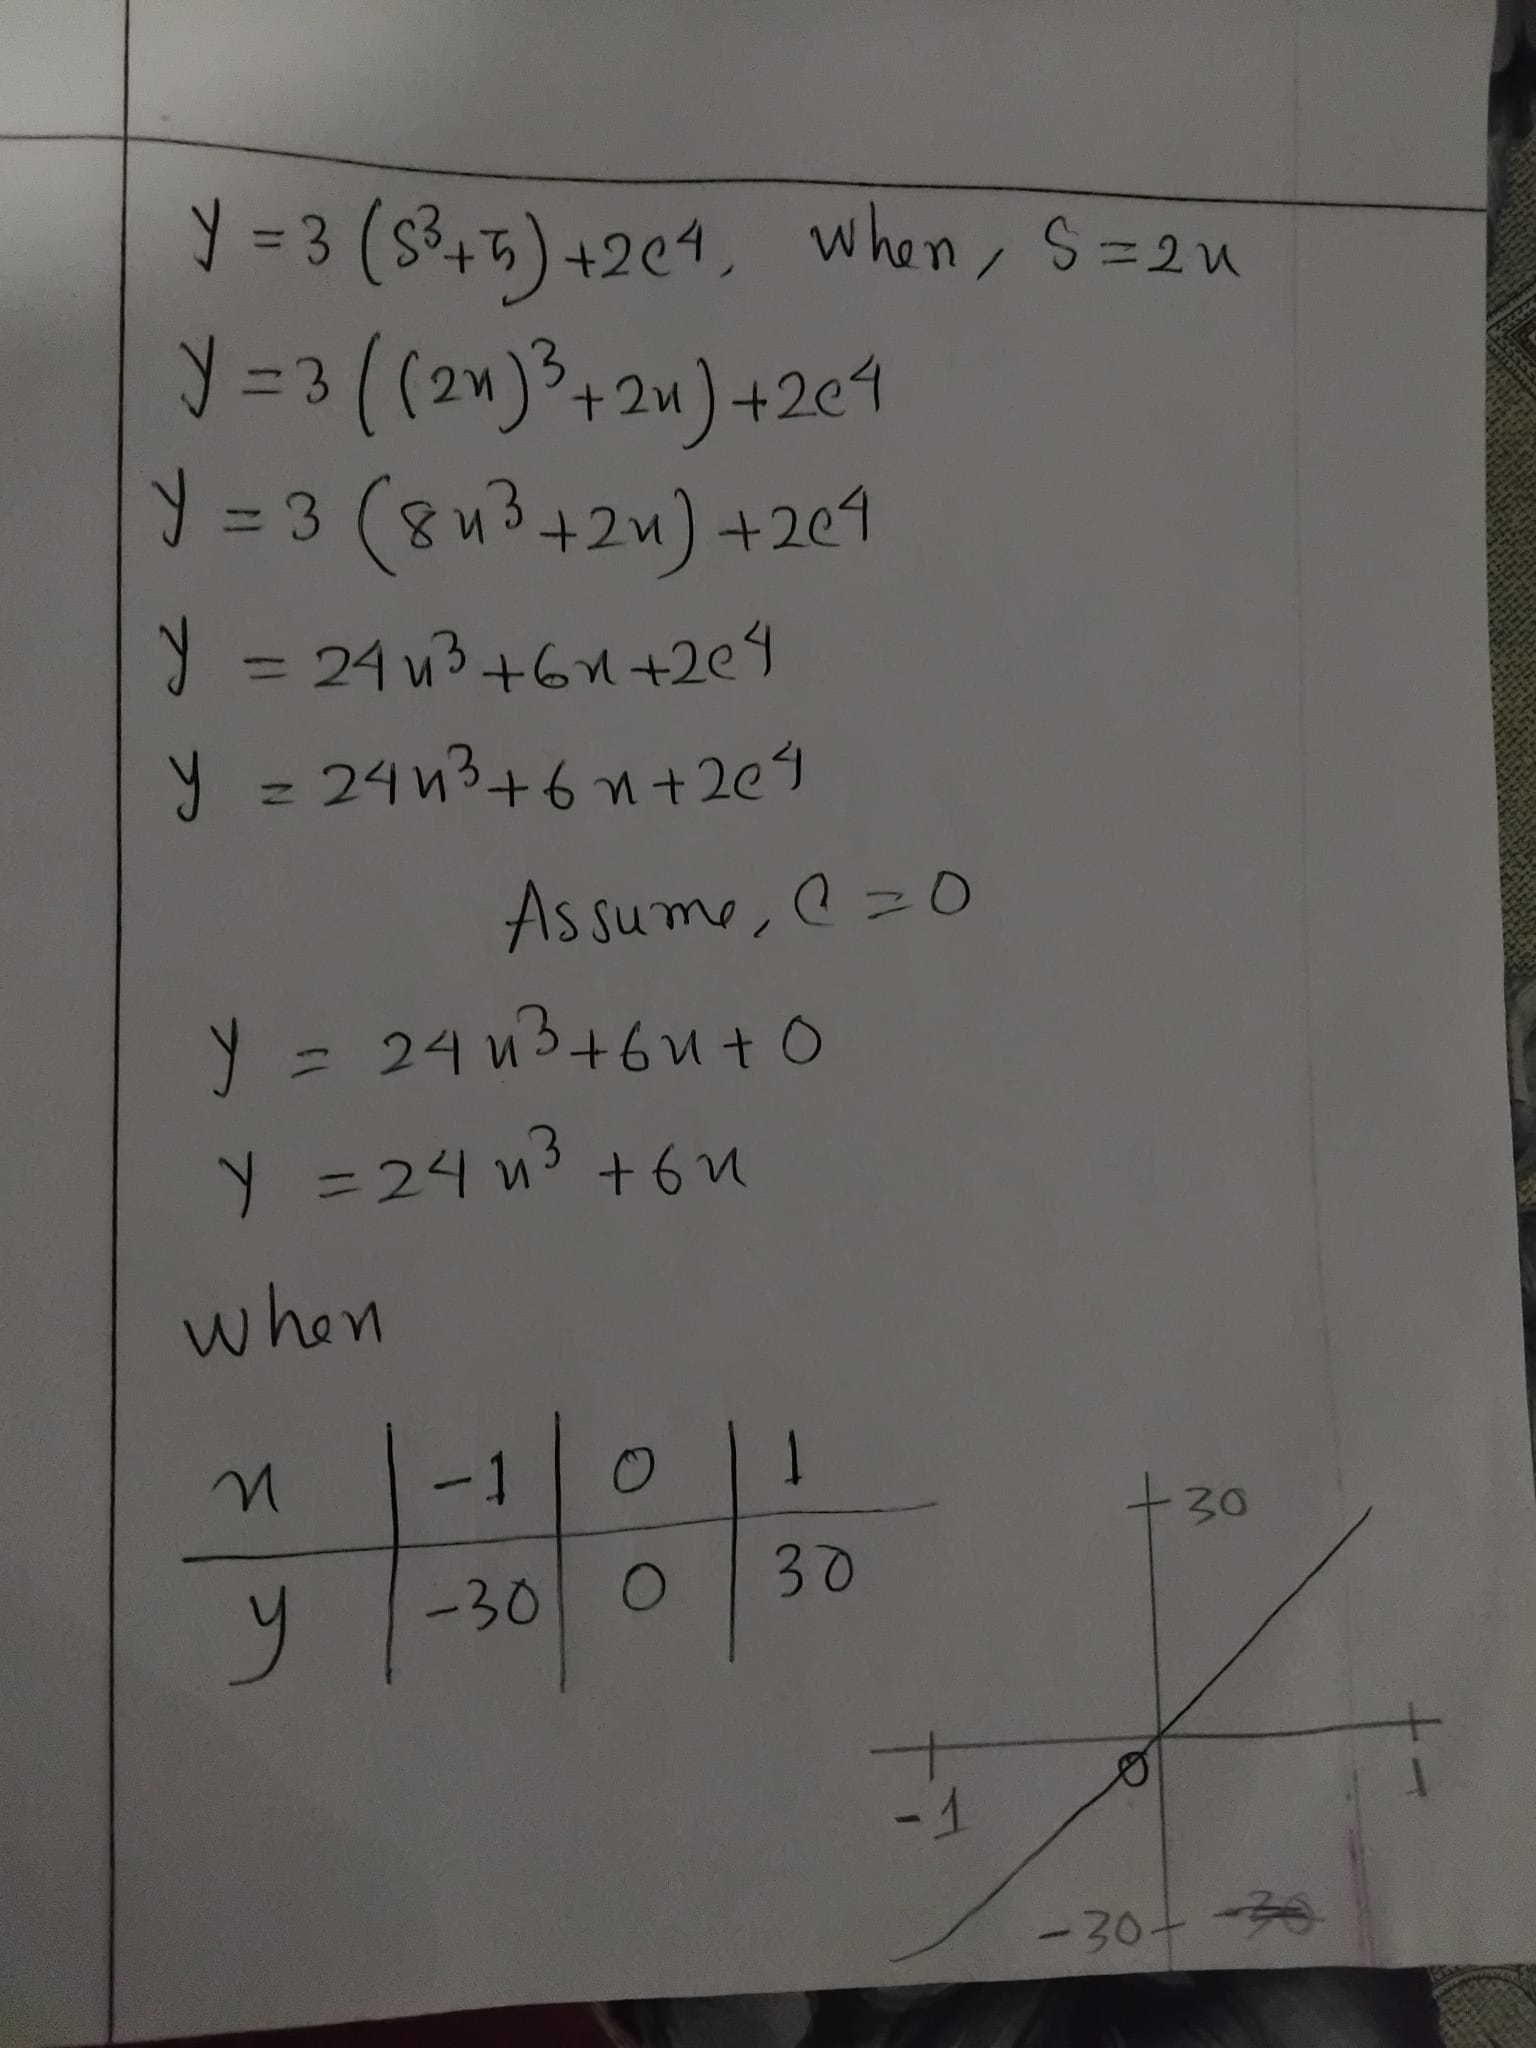 y = 3 (s³+5) +2c4, when, s = 2x
y = 3 ((2x)³+2x) +2c4
y = 3 (8x³+2x) +2c4
y = 24x³+6x+2c4
y = 24x³+6x+2c4
Assume, c = 0
y = 24x³+6x+0
y = 24x³+6x
when
x | -1 | 0 | 1
y | -30 | 0 | 30
30
-1 0 1
-30